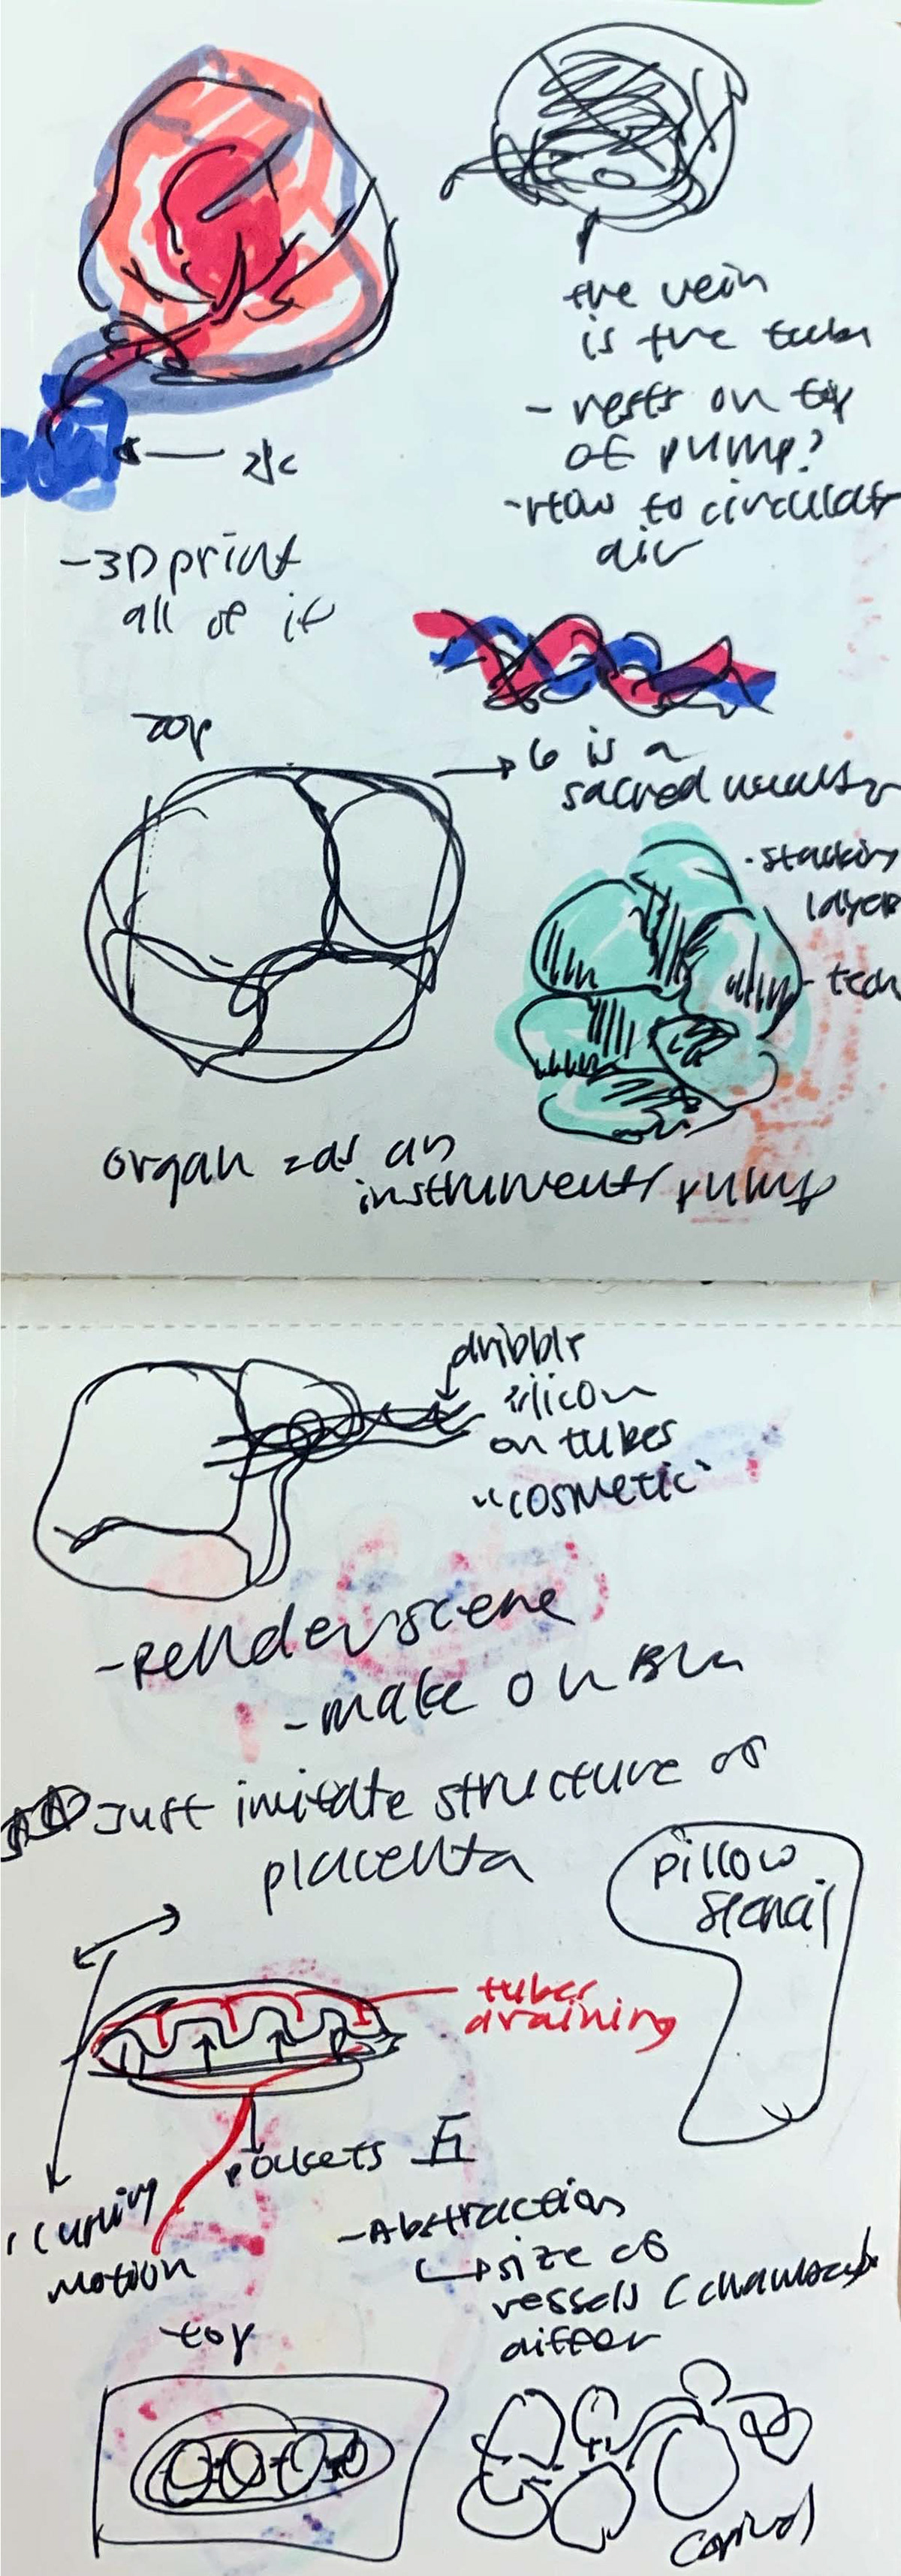 the vein
is the tube
- rests on top
of pump?
- How to circulate
air
- 3D print
all of it
top
→ 6 is a
sacred
· stacking
layers
- tech
organ as an
instrument/pump
dribble
silicon
on tubes
"cosmetic"
- Render scene
- make on
Just imitate structure of
placenta
pillow
stencil
tubes
draining
pockets
motion
- Abstraction
↳ size of
vessels (chambers)
differ
top